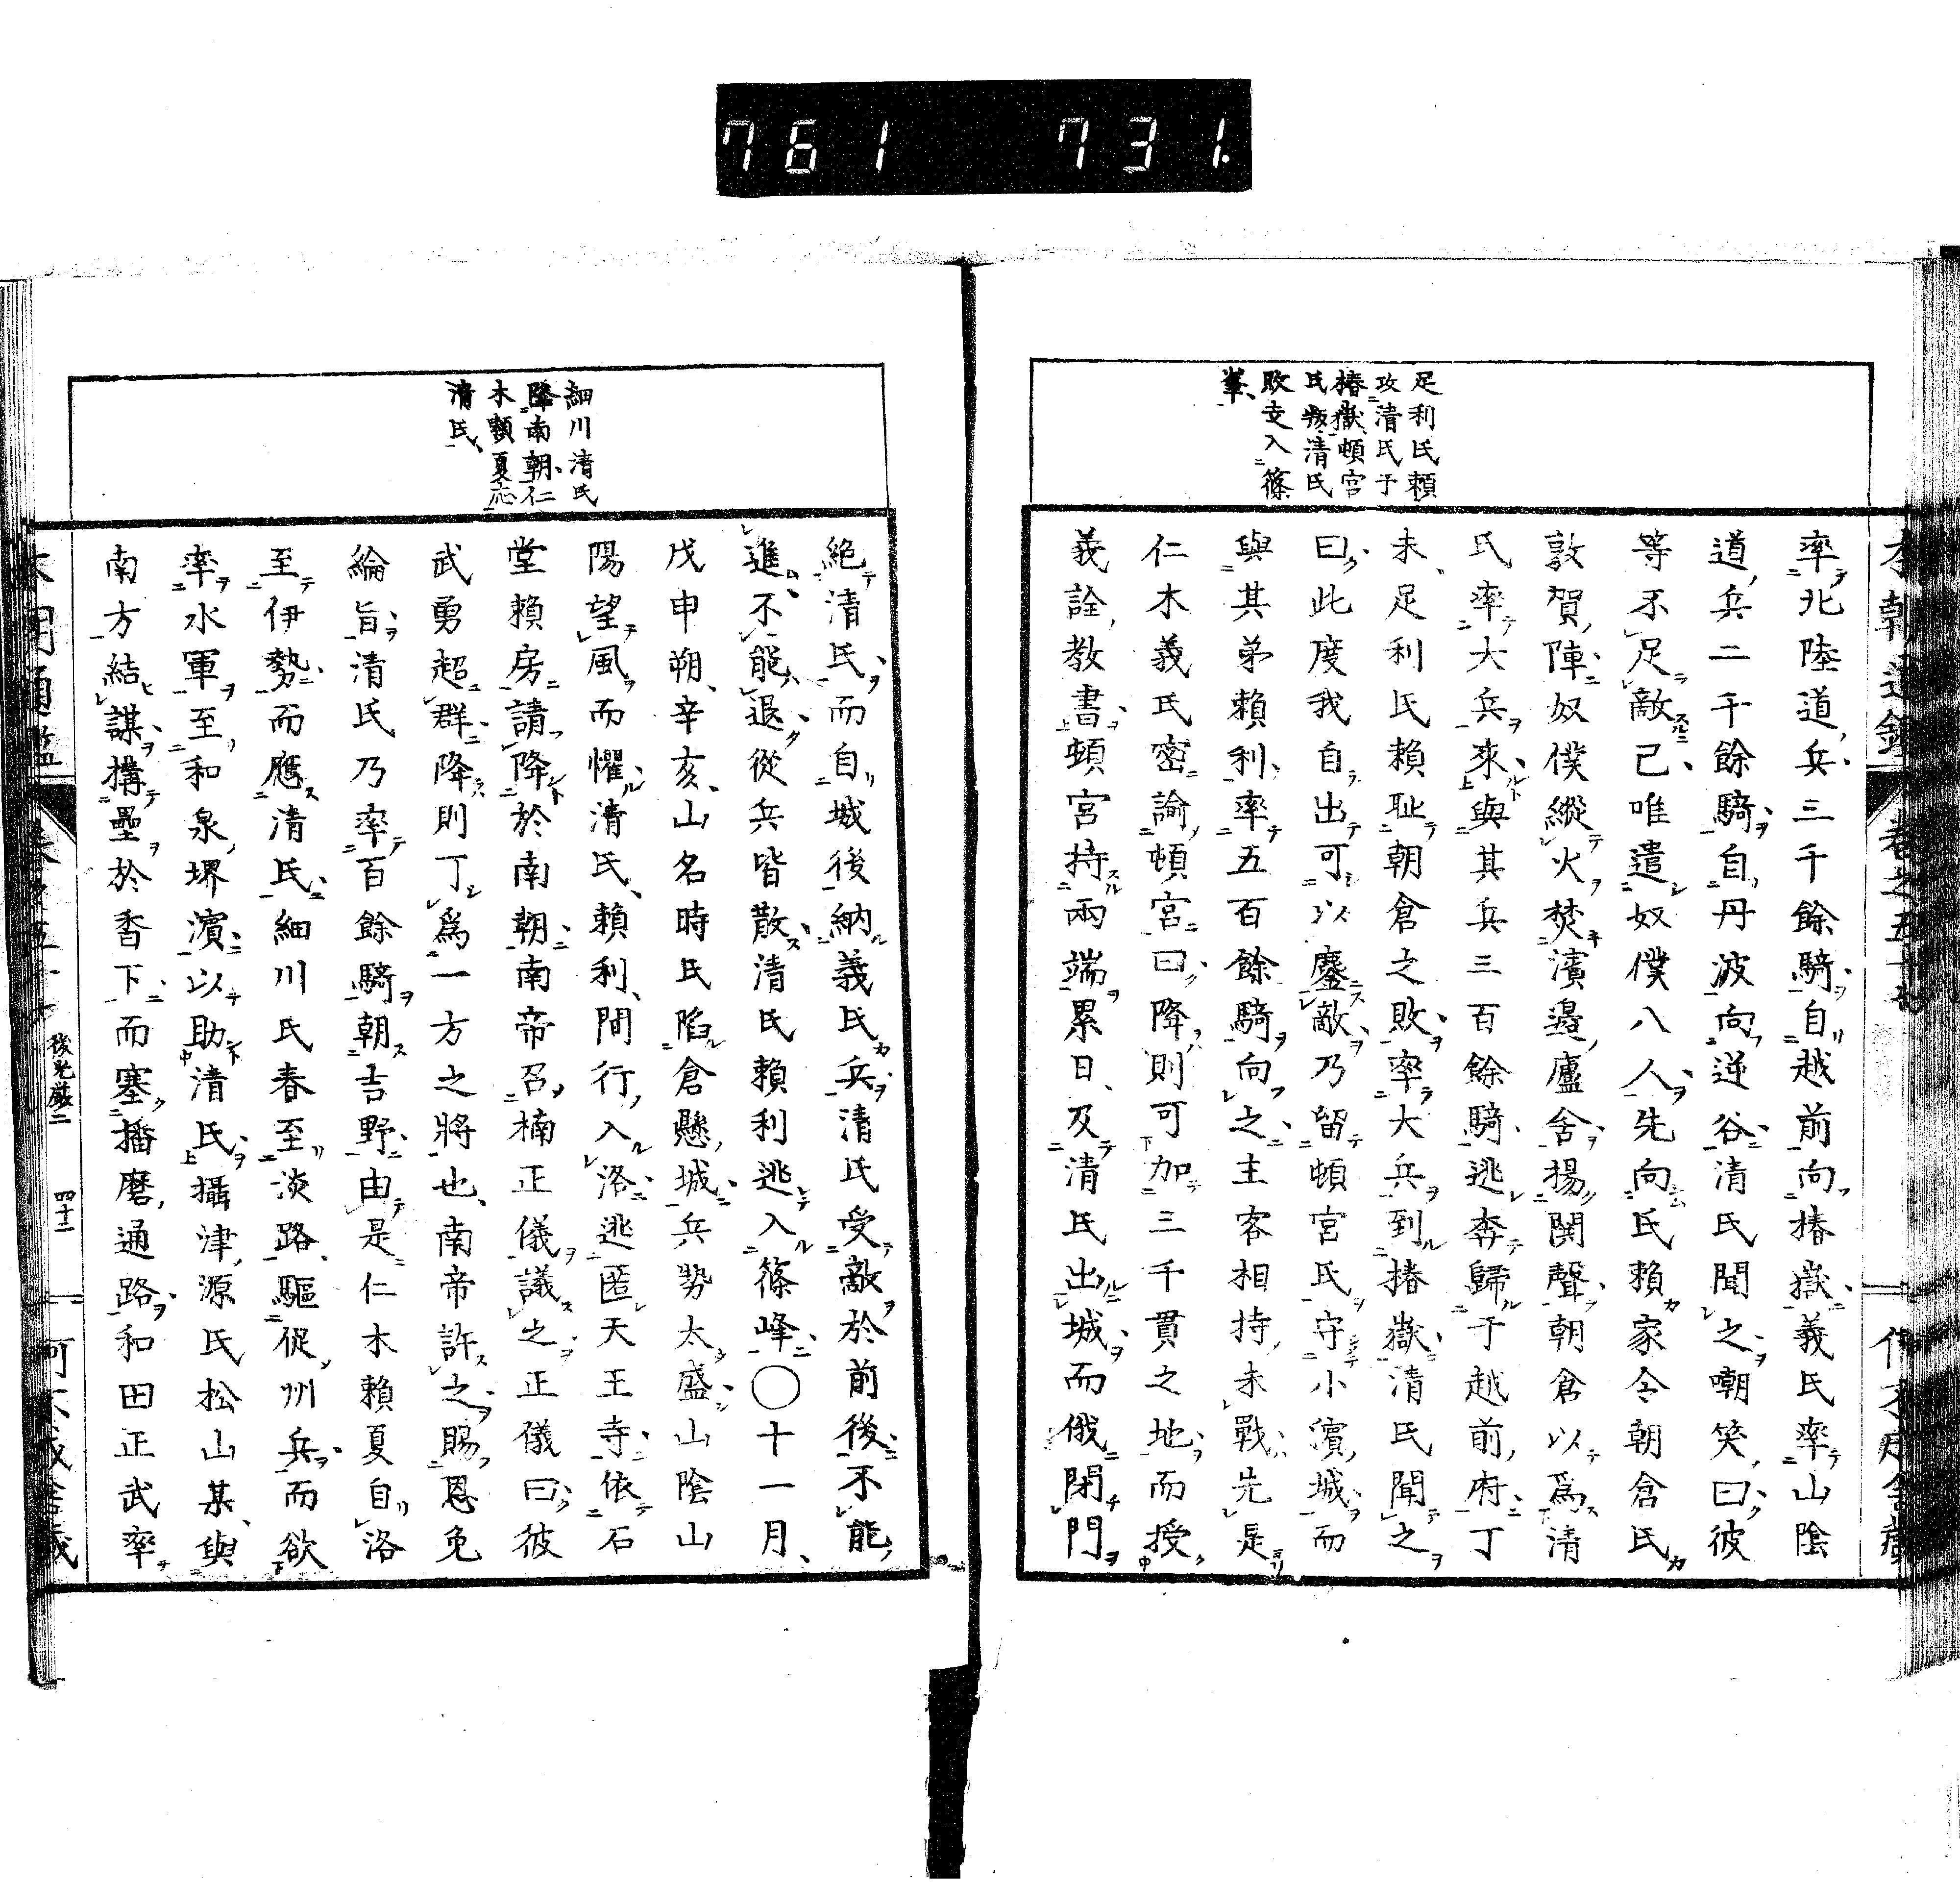 761 731.
足利氏頼
攻清氏于
椿嶽頓宮
氏叛清氏
敗走入篠
峯
率北陸道兵三千餘騎自越前向椿嶽義氏率山陰
道兵二千餘騎自丹波向逆谷清氏聞之嘲笑曰彼
等不足敵已唯遣奴僕八人先向氏頼家令朝倉氏
敦賀陣奴僕縱火焚濱邉廬舍揚鬨聲朝倉以爲清
氏率大兵來與其兵三百餘騎逃奔歸于越前府丁
未足利氏頼耻朝倉之敗率大兵到椿嶽清氏聞之
曰此度我自出可以鏖敵乃留頓宮氏守小濱城而
與其弟頼利率五百餘騎向之主客相持未戰先是
仁木義氏密諭頓宮曰降則可加三千貫之地而授
義詮教書頓宮持兩端累日及清氏出城而俄閉門
細川清氏
降南朝仁
木頼夏応
清氏
絕清氏而自城後納義氏兵清氏受敵於前後不能
進不能退從兵皆散清氏頼利逃入篠峰〇十一月
戊申朔辛亥山名時氏陷倉懸城兵勢太盛山陰山
陽望風而懼清氏頼利間行入洛逃匿天王寺依石
堂頼房請降於南朝南帝召楠正儀議之正儀曰彼
武勇超群降則丁爲一方之將也南帝許之賜恩免
綸旨清氏乃率百餘騎朝吉野由是仁木頼夏自洛
至伊勢而應清氏細川氏春至淡路驅促州兵而欲
率水軍至和泉堺濱以助清氏攝津源氏松山某與
南方結謀搆壘於香下而塞播磨通路和田正武率
後光嚴二
四十二